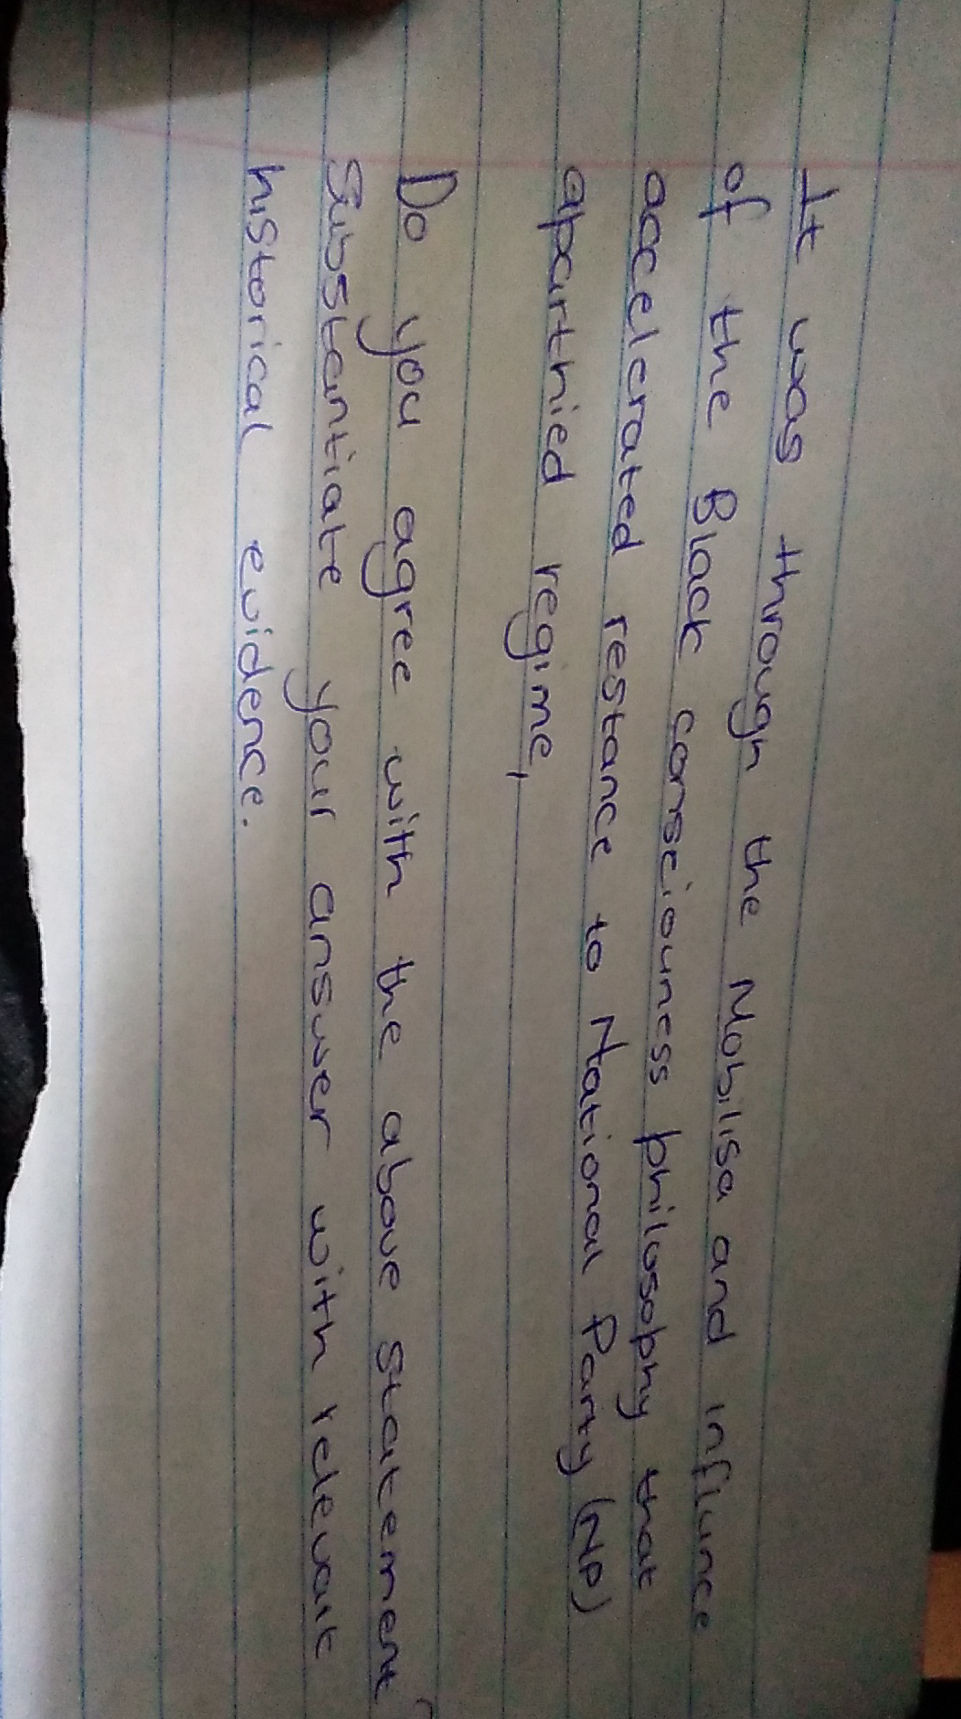 It was through the Mobilisa and influnce
of the Black consciouness philosophy that
accelerated restance to National Party (NP)
aparthied regime,
Do you agree with the above statement
Substantiate your answer with relevait
historical evidence.